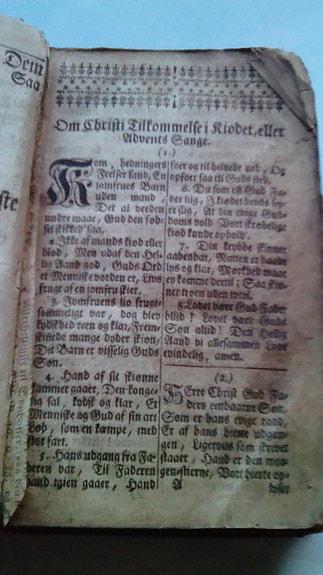 Dem
Saa
ste
Om Christi Tilkommelse i Kiødet, eller
Advents Sange.
(1.)
Kom, hedningers
Frelser sand, En
jomfrues Barn
uden mand,
Det al verden
undre maae, Gud den fød-
sel skikked saa.
2. Ikke af mands kiød eller
blod, Men udaf den Hel-
lig Aand god, Guds Ord
et Menniske vorden er, Livs
frugt af en jomfru skier.
3. Jomfruens liv frugt-
sommeligt var, dog blev
kydskhed reen og klar, Frem-
skinnede mange dyder skiøn,
Det Barn er visselig Guds
Søn.
4. Hand af sit skiønne
kammer gaaer, Den konge-
sal, kydsk og klar, Et
Menniske og Gud af sin art
Løb, som en kæmpe, med
fart.
5. Hans udgang fra Fa-
deren var, Til Faderen
igien gaaer, Hand
foer og til helvede ned, Og
opfoer saa til Guds
6. Du som est Gud Fa-
der liig, I kiødet
At din evige Guds
vold Vort skrøbelig
kiød kunde opholde.
7. Din krybbe skinner
aabenbar, Natten er
lys og klar, Mørkhed maae
ey komme dertil; Saa skin-
ner troen uden
8. Lovet være Gud Fader
blid! Lovet være Guds
Søn altid! Den Hellig
Aand vi allesammen Love
uendelig, amen.
(2.)
HErre Christ Gud Fa-
ders eenbaarne Søn,
Som er hans evige raad,
Er af hans hierte udgan-
gen, Ligerviis som skrevet
staaer, Hand er den mor-
gen-stierne, Vort hierte op-
A
lyser